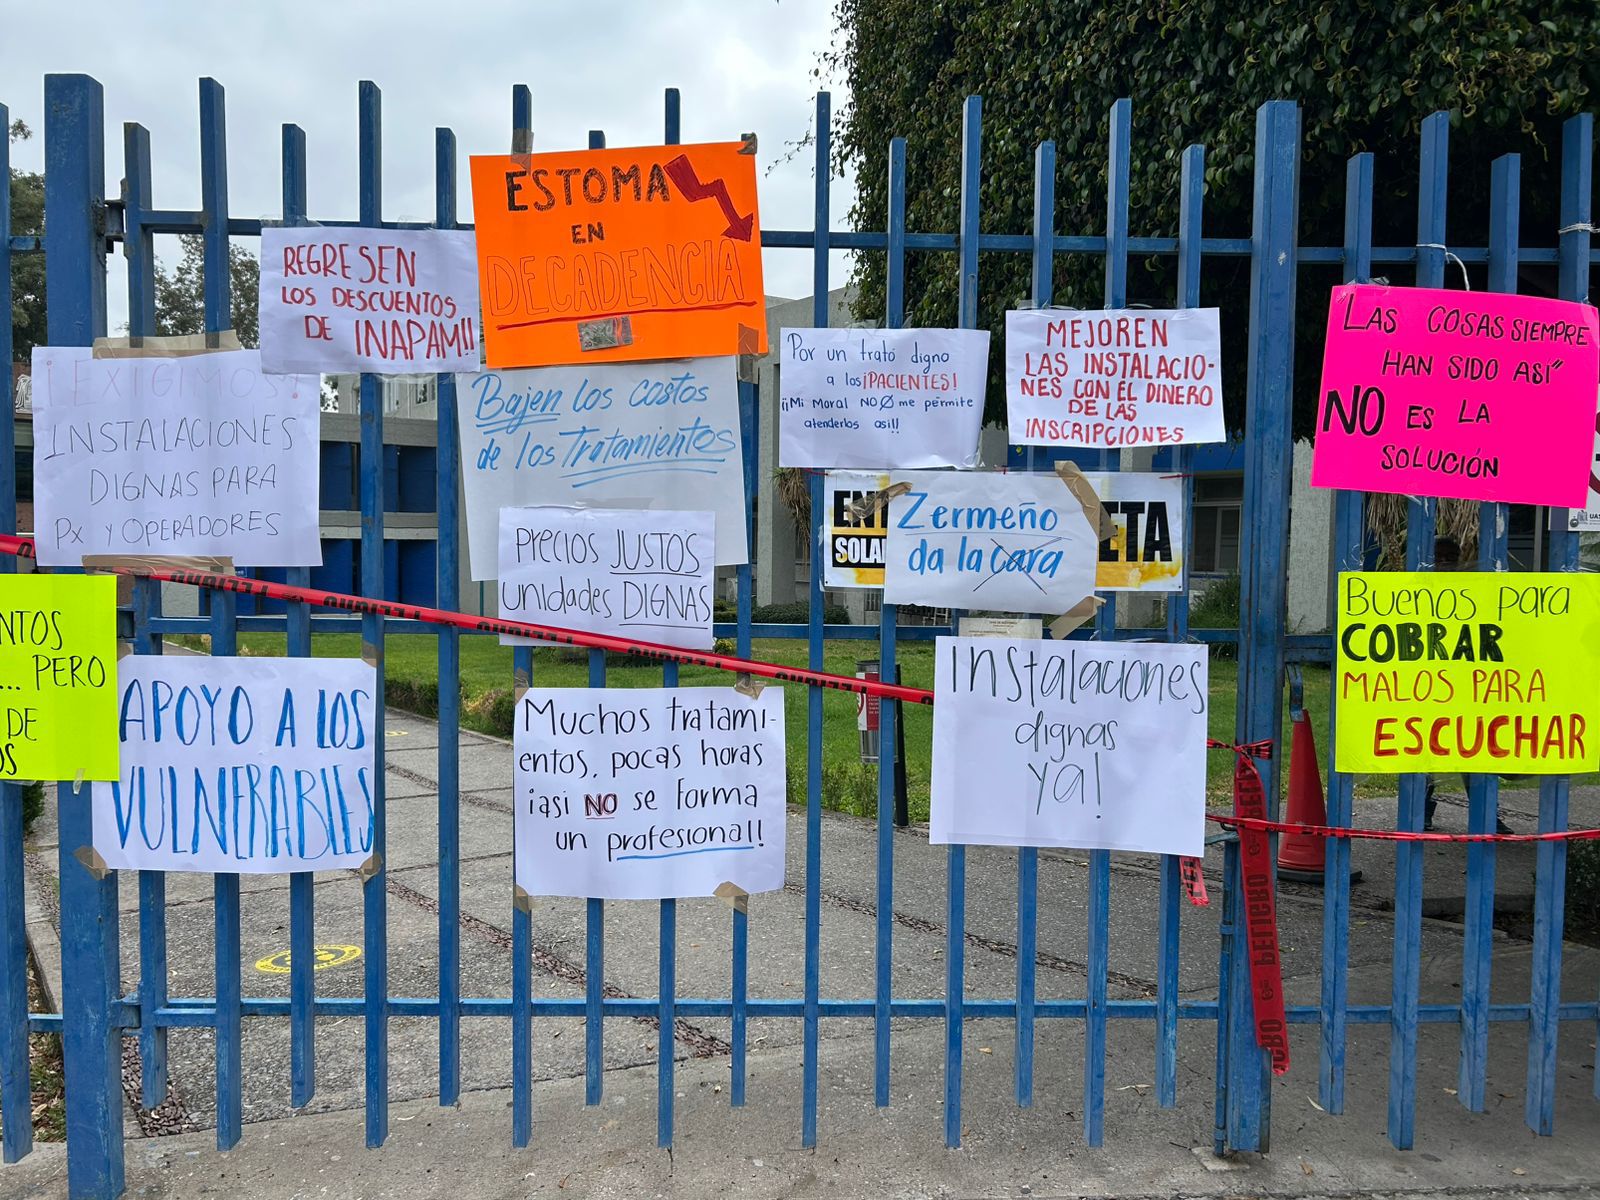 REGRESEN
LOS DESCUENTOS
DE INAPAM!!
ESTOMA
EN
DECADENCIA
¡EXIGIMOS!
INSTALACIONES
DIGNAS PARA
Px Y OPERADORES
Bajen los costos
de los Tratamientos
Por un trato digno
a los ¡PACIENTES!
¡¡Mi Moral NO me permite
atenderlos asi!!
MEJOREN
LAS INSTALACIO-
NES CON EL DINERO
DE LAS
INSCRIPCIONES
LAS COSAS SIEMPRE
HAN SIDO ASI"
NO ES LA
SOLUCIÓN
PRECIOS JUSTOS
unidades DIGNAS
Zermeño
da la cara
ETA
SOLA
NTOS
... PERO
DE
OS
APOYO A LOS
VULNERABLES
Muchos tratami-
entos, pocas horas
¡asi NO se forma
un profesional!
INStalaciones
dignas
YA!
BUENOS para
COBRAR
MALOS PARA
ESCUCHAR
PELIGRO
PELIGRO
PELIGRO
PELIGRO
PELIGRO